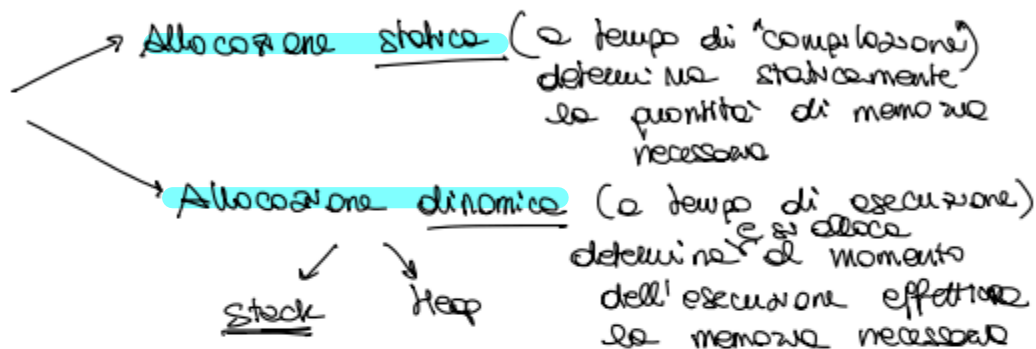 Allocazione statica (a tempo di "compilazione")
determina staticamente
la quantità di memoria
necessaria
Allocazione dinamica (a tempo di esecuzione)
e si alloca
determina al momento
dell'esecuzione effettiva
la memoria necessaria
Stack
Heap